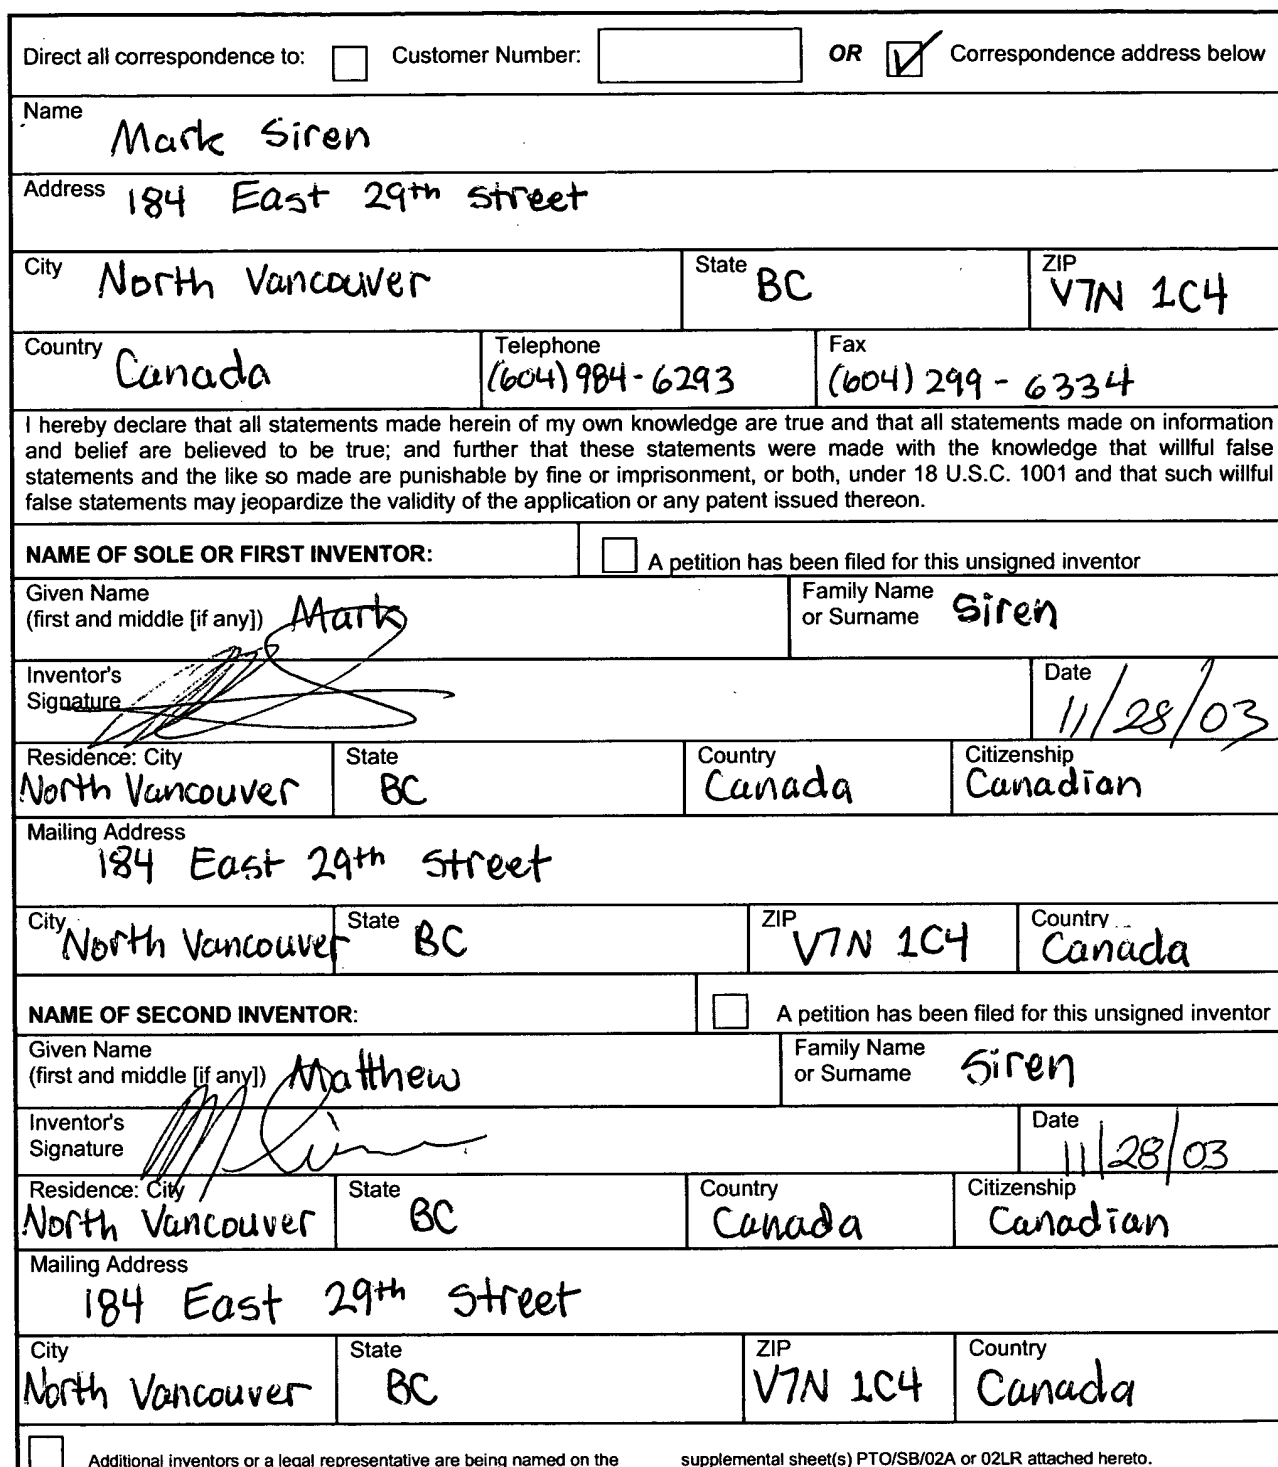 Direct all correspondence to: Customer Number: OR Correspondence address below
Name
Mark Siren
Address 184 East 29th street
City North Vancouver State BC ZIP V7N 1C4
Country Canada Telephone (604) 984-6293 Fax (604) 299-6334
I hereby declare that all statements made herein of my own knowledge are true and that all statements made on information
and belief are believed to be true; and further that these statements were made with the knowledge that willful false
statements and the like so made are punishable by fine or imprisonment, or both, under 18 U.S.C. 1001 and that such willful
false statements may jeopardize the validity of the application or any patent issued thereon.
NAME OF SOLE OR FIRST INVENTOR: A petition has been filed for this unsigned inventor
Given Name Family Name
(first and middle [if any]) Mark or Surname Siren
Inventor's Date
Signature 11/28/03
Residence: City State Country Citizenship
North Vancouver BC Canada Canadian
Mailing Address
184 East 29th street
City North Vancouver State BC ZIP V7N 1C4 Country Canada
NAME OF SECOND INVENTOR: A petition has been filed for this unsigned inventor
Given Name Family Name
(first and middle [if any]) Matthew or Surname Siren
Inventor's Date
Signature 11/28/03
Residence: City State Country Citizenship
North Vancouver BC Canada Canadian
Mailing Address
184 East 29th street
City State ZIP Country
North Vancouver BC V7N 1C4 Canada
Additional inventors or a legal representative are being named on the supplemental sheet(s) PTO/SB/02A or 02LR attached hereto.